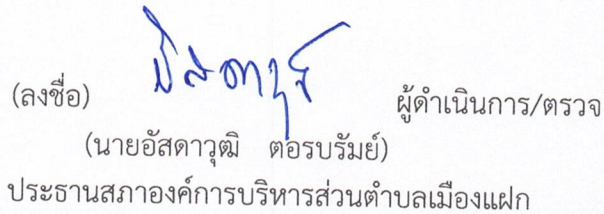 (ลงชื่อ) ผู้ดำเนินการ/ตรวจ
(นายอัสดาวุฒิ ตอรบรัมย์)
ประธานสภาองค์การบริหารส่วนตำบลเมืองแฝก